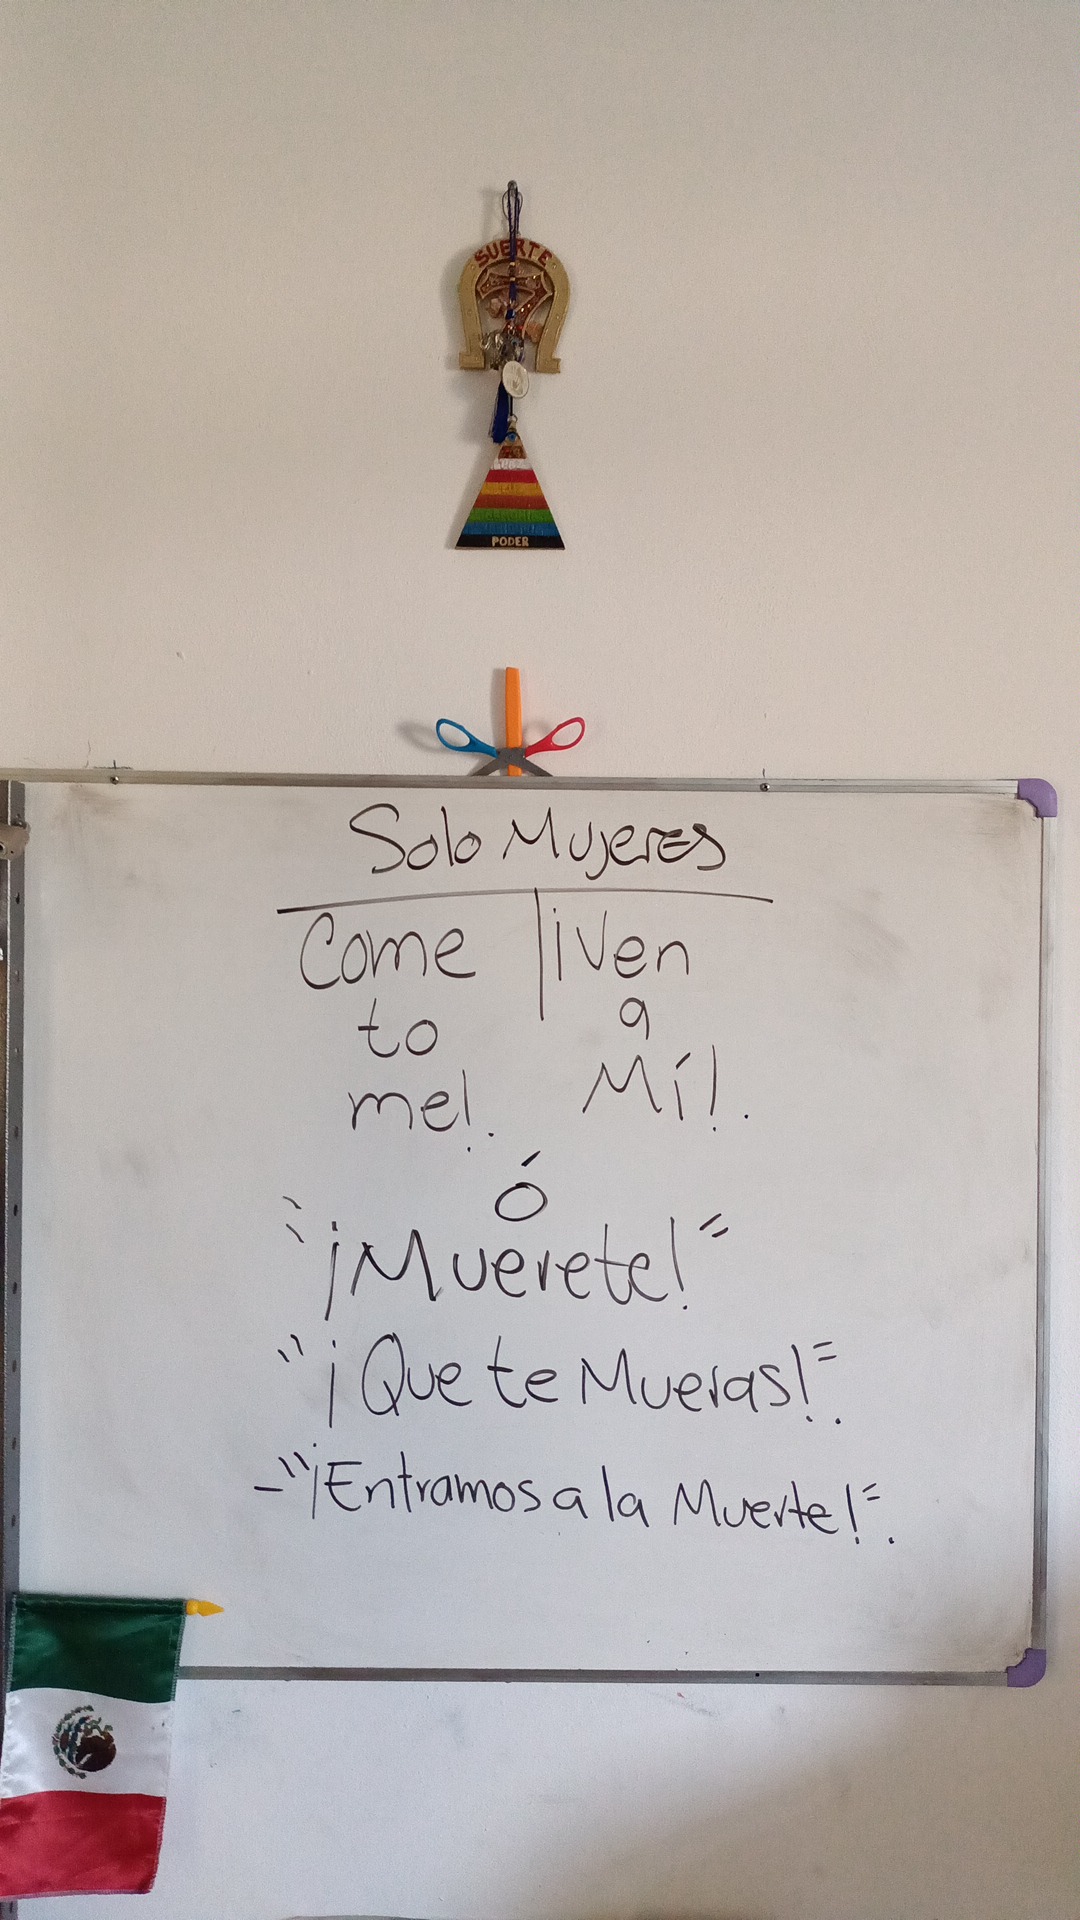 SUERTE
PODER
Solo Mujeres
Come to me!.
¡Ven a Mí!.
Ó
"¡Muerete!"
"¡Que te Mueras!".
-"¡Entramos a la Muerte!".